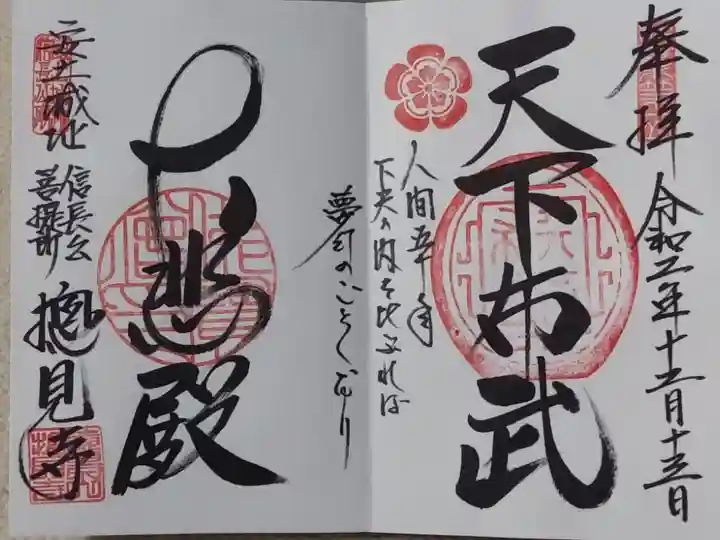 奉拝
令和二年十二月十三日
天下布武
人間五十年
下天の内を比ぶれば
夢幻のごとくなり
大悲殿
安土城址
信長公
菩提所
摠見寺